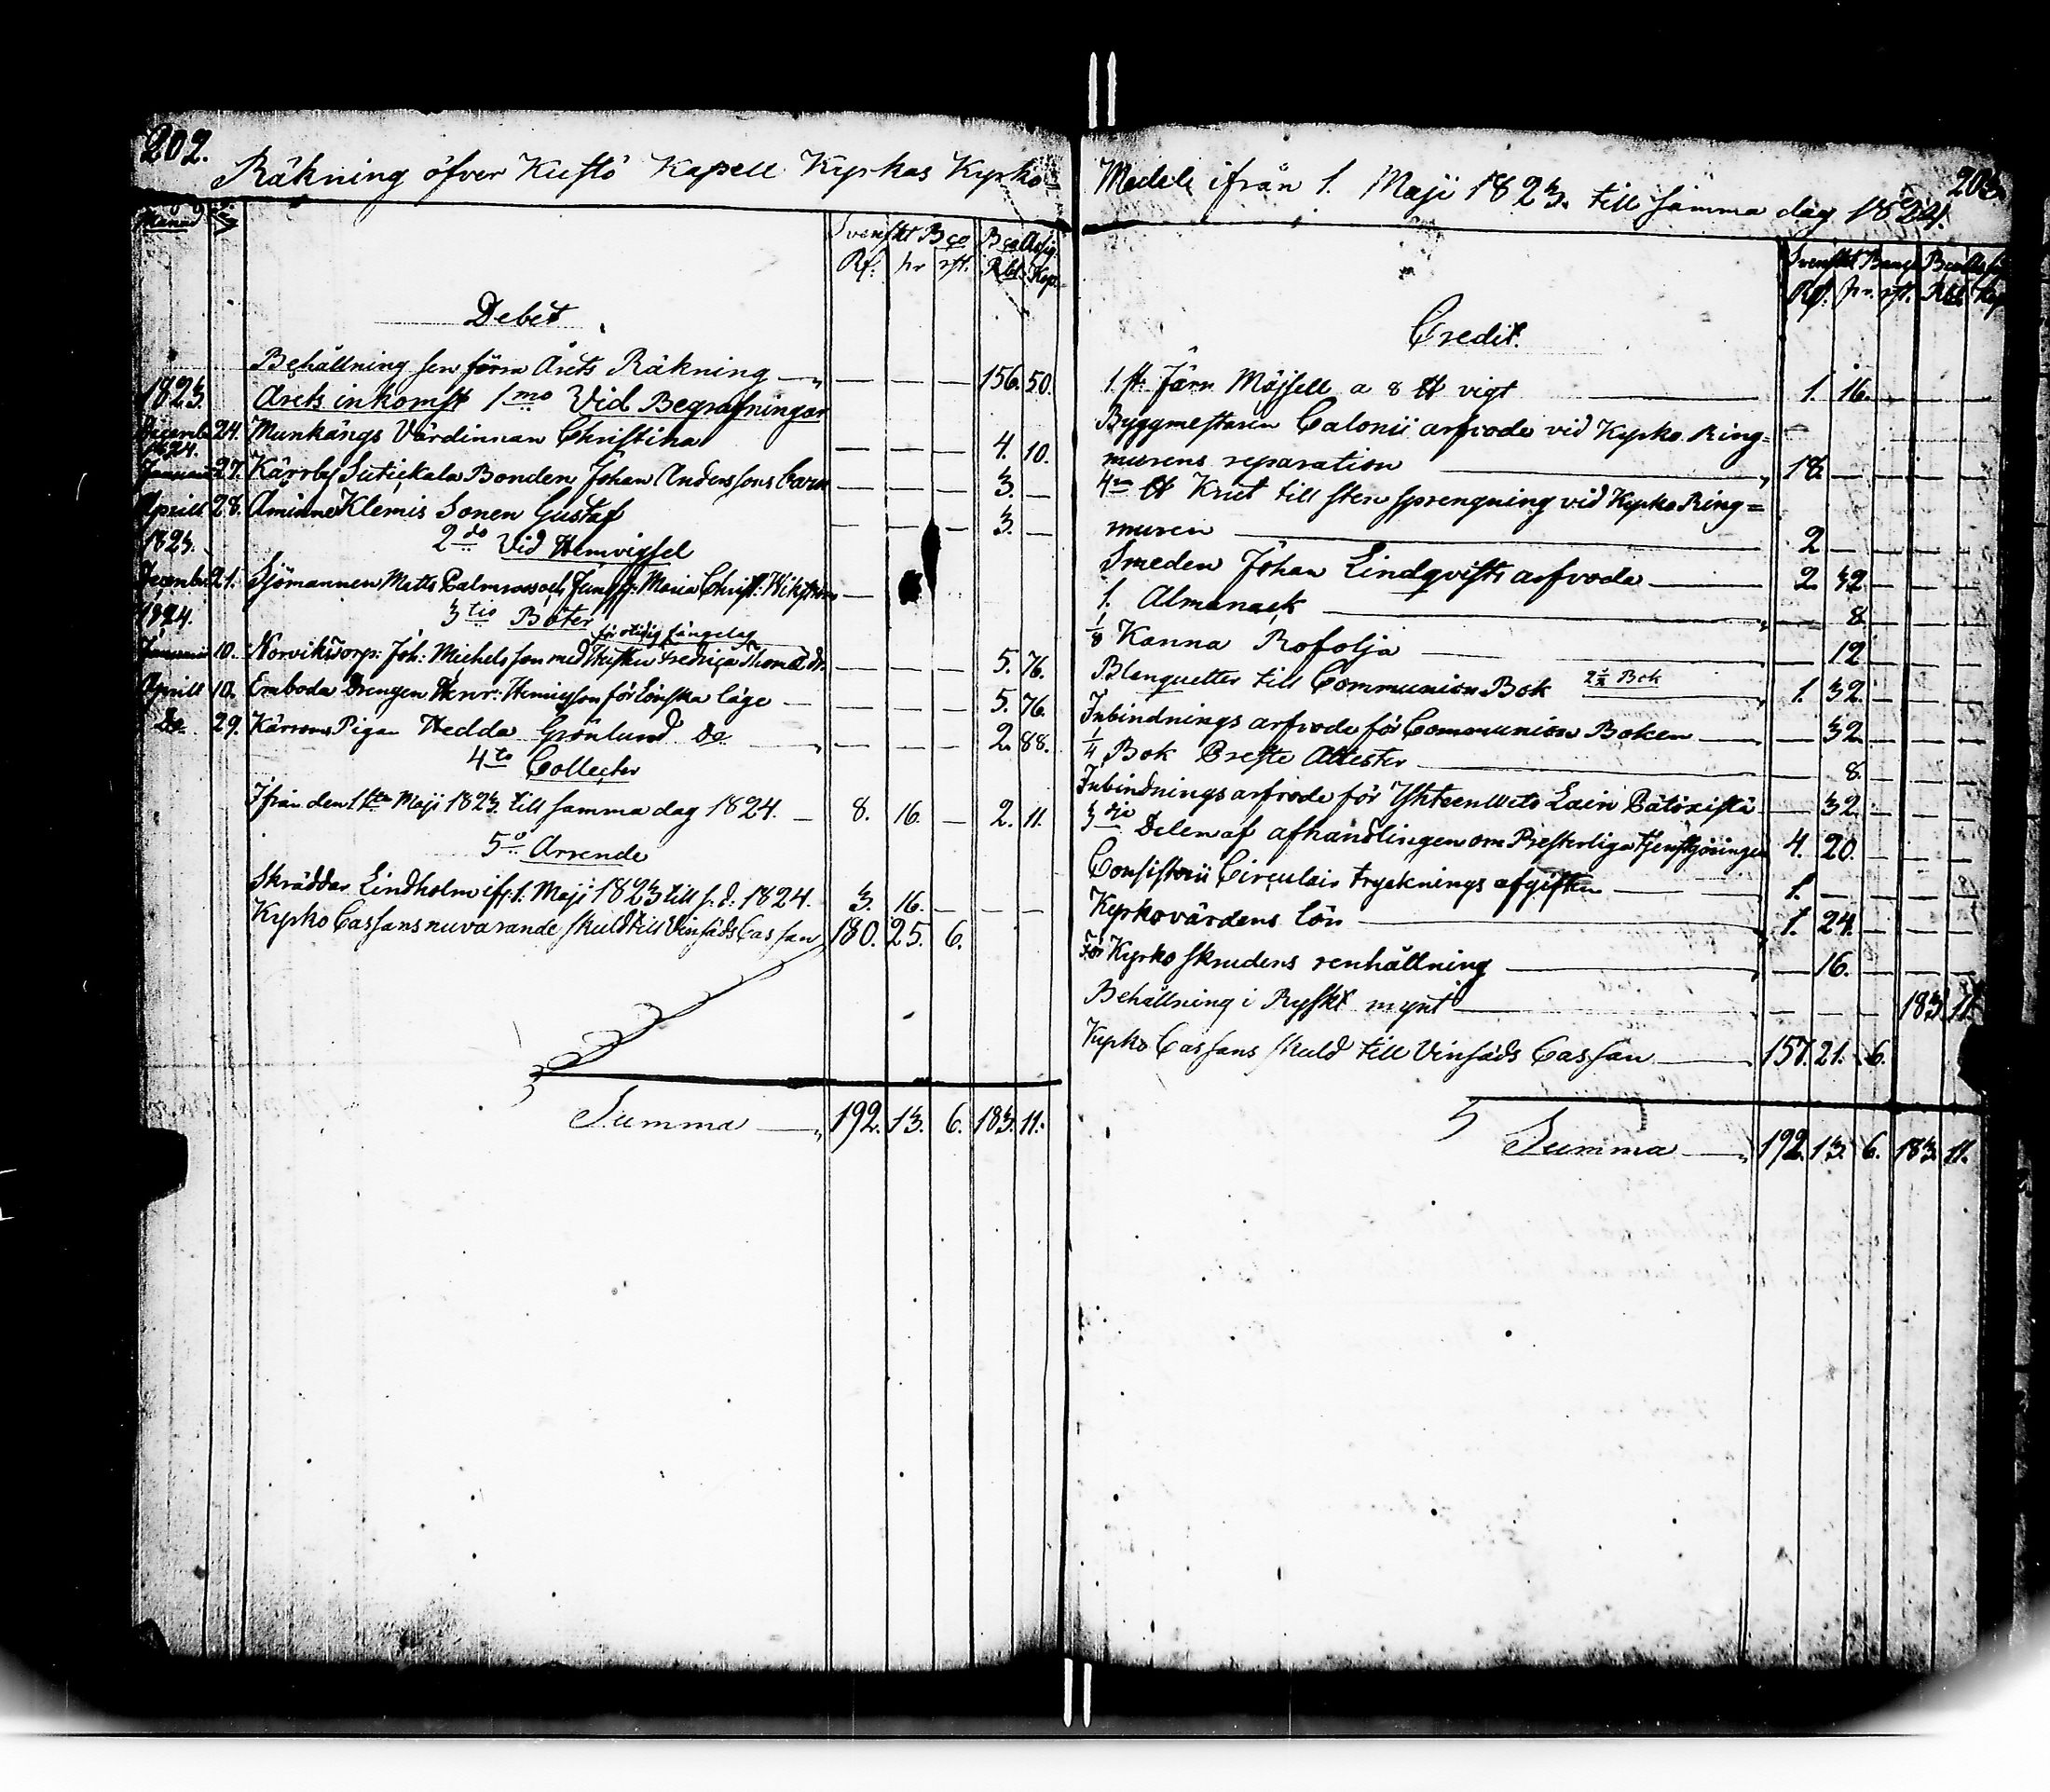 202.
Räkning öfver Kustö Kapell Kyrkas Kyrko-
Månad
Svenskt Bco Bco Assig.
Rf. hr rst. Rbl. Kop.
Debet
Behållning sen förra Årets Räkning — — — 156. 50.
1823. Årets inkomst 1mo Vid Begrafningar
Decemb. 24. Munkängs Värdinnan Christina — — — 4. 10.
1824.
Januari 27. Kärrby Sutickala Bonden Johan Anderssons barn — — — 3. —
Aprill 28. Åminne Klemis Sonen Gustaf — — — 3. —
2do Vid Hemvigsel
1823.
Decemb. 21. Sjömannen Matts Palmroos och Jungf: Maria Christ: Wikström —
3tio Böter
1824.
för otidig sängelag
Januari 10. Norviks Torp: Joh: Michelsson med Hustru Fredrica Thomæ dr. — — — 5. 76.
Aprill 10. Emboda Drengen Henr: Henricsson för Lönska läge — — — 5. 76.
Do 29. Kärroms Pigan Hedda Grönlund Do — — — 2. 88.
4to Collecter
Ifrån den 1sta Maji 1823. till samma dag 1824. — 8. 16. — 2. 11.
5o Arrende
Skräddar Lindholm ifr: 1. Maji 1823 till s. d: 1824. 3. 16. — — —
Kyrko Cassans nuvarande skuld till Vinsäds Cassan 180. 25. 6.
Summa — 192. 13. 6. 183. 11.
203.
Medel ifrån 1. Maji 1823. till samma dag 1824.
Svenskt Banco Bco Assig
Rf. hr. rst. Rbl Kop
Credit.
1 st: Järn Måjsell a 8 ℔ vigt — 1. 16. — — —
Byggmestaren Calonii arfvode vid Kyrko Ring=
murens reparation — 18. — — — —
4ra ℔ Krut till sten sprengning vid Kyrko Ring=
muren — 2 — — — —
Smeden Johan Lindqvists arfvode — 2. 32 — — —
1. Almanack — 8. — — —
1/8 Kanna Rofolja — 12 — — —
Blanquetter till Communion Bok 2½ Bok 1. 32. — — —
Inbindnings arfvode för Communions Boken — 32 — — —
1/4 Bok Preste Attester — 8. — — —
Inbindnings arfvode för Yhteenweto Lain Päätöxistä — 32. — — —
3dje Delen af afhandlingen om Presterliga tjenstgöringen 4. 20. — — —
Consistorii Circulair trycknings afgiften — 1. — — — —
Kyrkovärdens lön — 1. 24. — — —
För Kyrko skrudens renhållning — 16. — — —
Behållning i Ryskt mynt — — — — 183. 11.
Kyrko Cassans skuld till Vinsäds Cassan — 157. 21. 6.
Summa — 192. 13. 6. 183. 11.